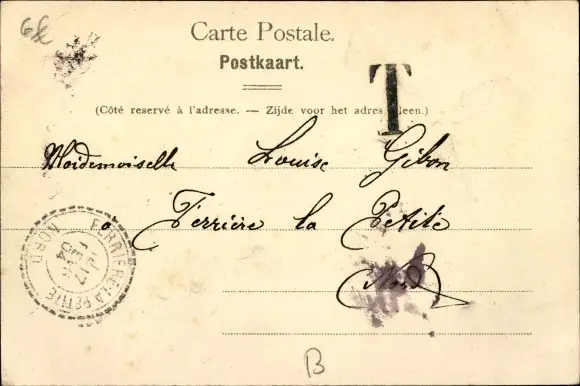 6€
Carte Postale.
Postkaart.
T
(Côté reservé à l'adresse. — Zijde voor het adres alleen.)
Mademoiselle Louise Gibon
à Ferrière la Petite
Nord
FERRIERE-LA-PETITE
17
FEVR
04
NORD
B